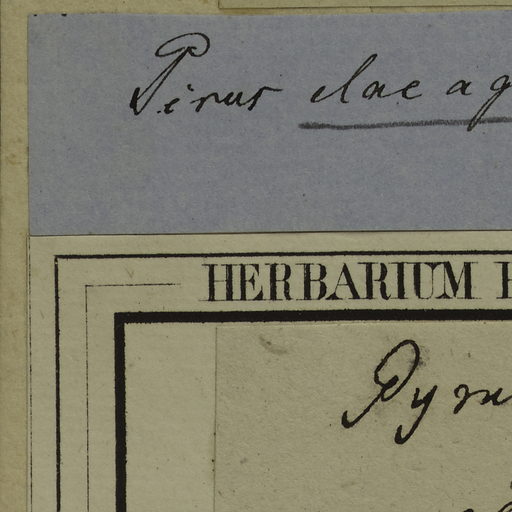 Pirus elaeag
HERBARIUM
Pyru